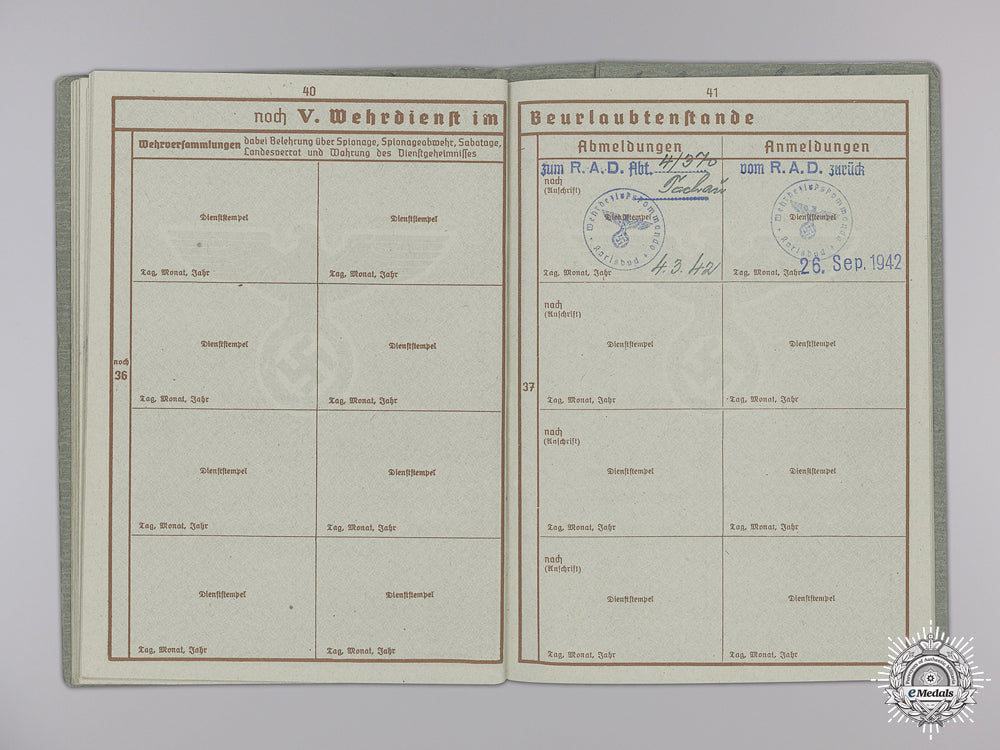 40
noch V. Wehrdienst im
Wehrversammlungen dabei Belehrung über Spionage, Spionageabwehr, Sabotage,
Landesverrat und Wahrung des Dienstgeheimnisses
Dienststempel
Dienststempel
Tag, Monat, Jahr
Tag, Monat, Jahr
noch
36
Dienststempel
Dienststempel
Tag, Monat, Jahr
Tag, Monat, Jahr
Dienststempel
Dienststempel
Tag, Monat, Jahr
Tag, Monat, Jahr
Dienststempel
Dienststempel
Tag, Monat, Jahr
Tag, Monat, Jahr
41
Beurlaubtenstande
Abmeldungen
Anmeldungen
zum R. A. D. Abt. 4/370
vom R. A. D. zurück
nach
(Anschrift)
Dienststempel
Wehrbezirkskommando
Karlsbad
Dienststempel
Wehrbezirkskommando
Karlsbad
Tag, Monat, Jahr 4.3.42
Tag, Monat, Jahr 26. Sep. 1942
37
nach
(Anschrift)
Dienststempel
Dienststempel
Tag, Monat, Jahr
Tag, Monat, Jahr
nach
(Anschrift)
Dienststempel
Dienststempel
Tag, Monat, Jahr
Tag, Monat, Jahr
nach
(Anschrift)
Dienststempel
Dienststempel
Tag, Monat, Jahr
Tag, Monat, Jahr
eMedals